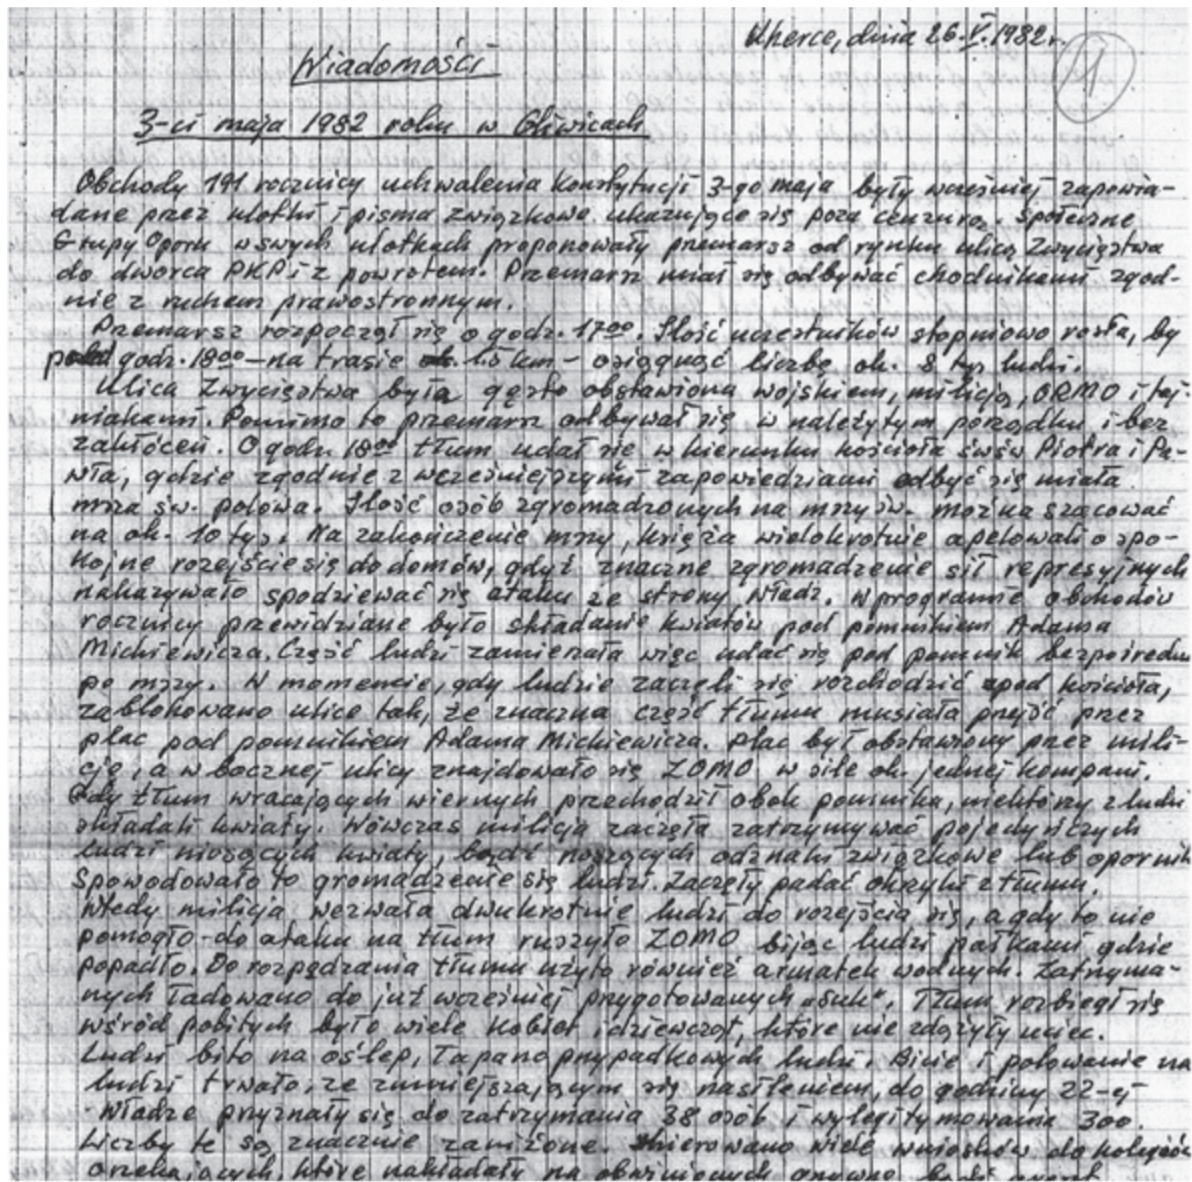 Uherce, dnia 26.V.1982r.
1
Wiadomości
3-ci maja 1982 roku w Gliwicach
Obchody 191 rocznicy uchwalenia Konstytucji 3-go maja były wcześniej zapowia-
dane przez ulotki i pisma związkowe ukazujące się poza cenzurą. Społeczne
Grupy Oporu w swych ulotkach proponowały przemarsz od rynku ulicą Zwycięstwa
do dworca PKP i z powrotem. Przemarsz miał się odbywać chodnikami zgod-
nie z ruchem prawostronnym.
Przemarsz rozpoczął się o godz. 17oo. Ilość uczestników stopniowo rosła, by
godz. 18oo - na trasie ok. 1.5 km - osiągnąć liczbę ok. 8 tys ludzi.
Ulica Zwycięstwa była gęsto obstawiona wojskiem, milicją, ORMO i taj-
niakami. Pomimo to przemarsz odbywał się w należytym porządku i bez
zakłóceń. O godz. 18oo tłum udał się w kierunku kościoła św św Piotra i Pa-
wła, gdzie zgodnie z wcześniejszymi zapowiedziami odbyć się miała
msza św. polowa. Ilość osób zgromadzonych na mszy św. można szacować
na ok. 10 tys. Na zakończenie mszy, księża wielokrotnie apelowali o spo-
kojne rozejście się do domów, gdyż znaczne zgromadzenie sił represyjnych
nakazywało spodziewać się ataku ze strony władz. W programie obchodów
rocznicy przewidziane było składanie kwiatów pod pomnikiem Adama
Mickiewicza. Część ludzi zamierzała więc udać się pod pomnik bezpośredn
po mszy. W momencie, gdy ludzie zaczęli się rozchodzić spod kościoła,
zablokowano ulice tak, że znaczna część tłumu musiała przejść przez
plac pod pomnikiem Adama Mickiewicza. Plac był obstawiony przez mili-
cję, a w bocznej ulicy znajdowało się ZOMO w sile ok. jednej kompani.
Gdy tłum wracających wiernych przechodził obok pomnika, niektórzy z ludzi
składali kwiaty. Wówczas milicja zaczęła zatrzymywać pojedyńczych
ludzi niosących kwiaty, bądź noszących odznaki związkowe lub opornik
Spowodowało to gromadzenie się ludzi. Zaczęły padać okrzyki z tłumu.
Wtedy milicja wezwała dwukrotnie ludzi do rozejścia się, a gdy to nie
pomogło - do ataku na tłum ruszyło ZOMO bijąc ludzi pałkami gdzie
popadło. Do rozpędzania tłumu użyto również armatek wodnych. Zatrzyma-
nych ładowano do już wcześniej przygotowanych „suk". Tłum rozbiegł się
wśród pobitych było wiele kobiet i dziewcząt, które nie zdążyły uciec.
Ludzi bito na oślep, łapano przypadkowych ludzi. Bicie i polowanie na
ludzi trwało, ze zmniejszającym się nasileniem, do godziny 22-ej
Władze przyznały się do zatrzymania 38 osób i wylegitymowania 300.
Liczby te są znacznie zaniżone. Skierowano wiele wniosków do kolegiów
orzekających, które nakładały na obwinionych grzywnę bądź areszt